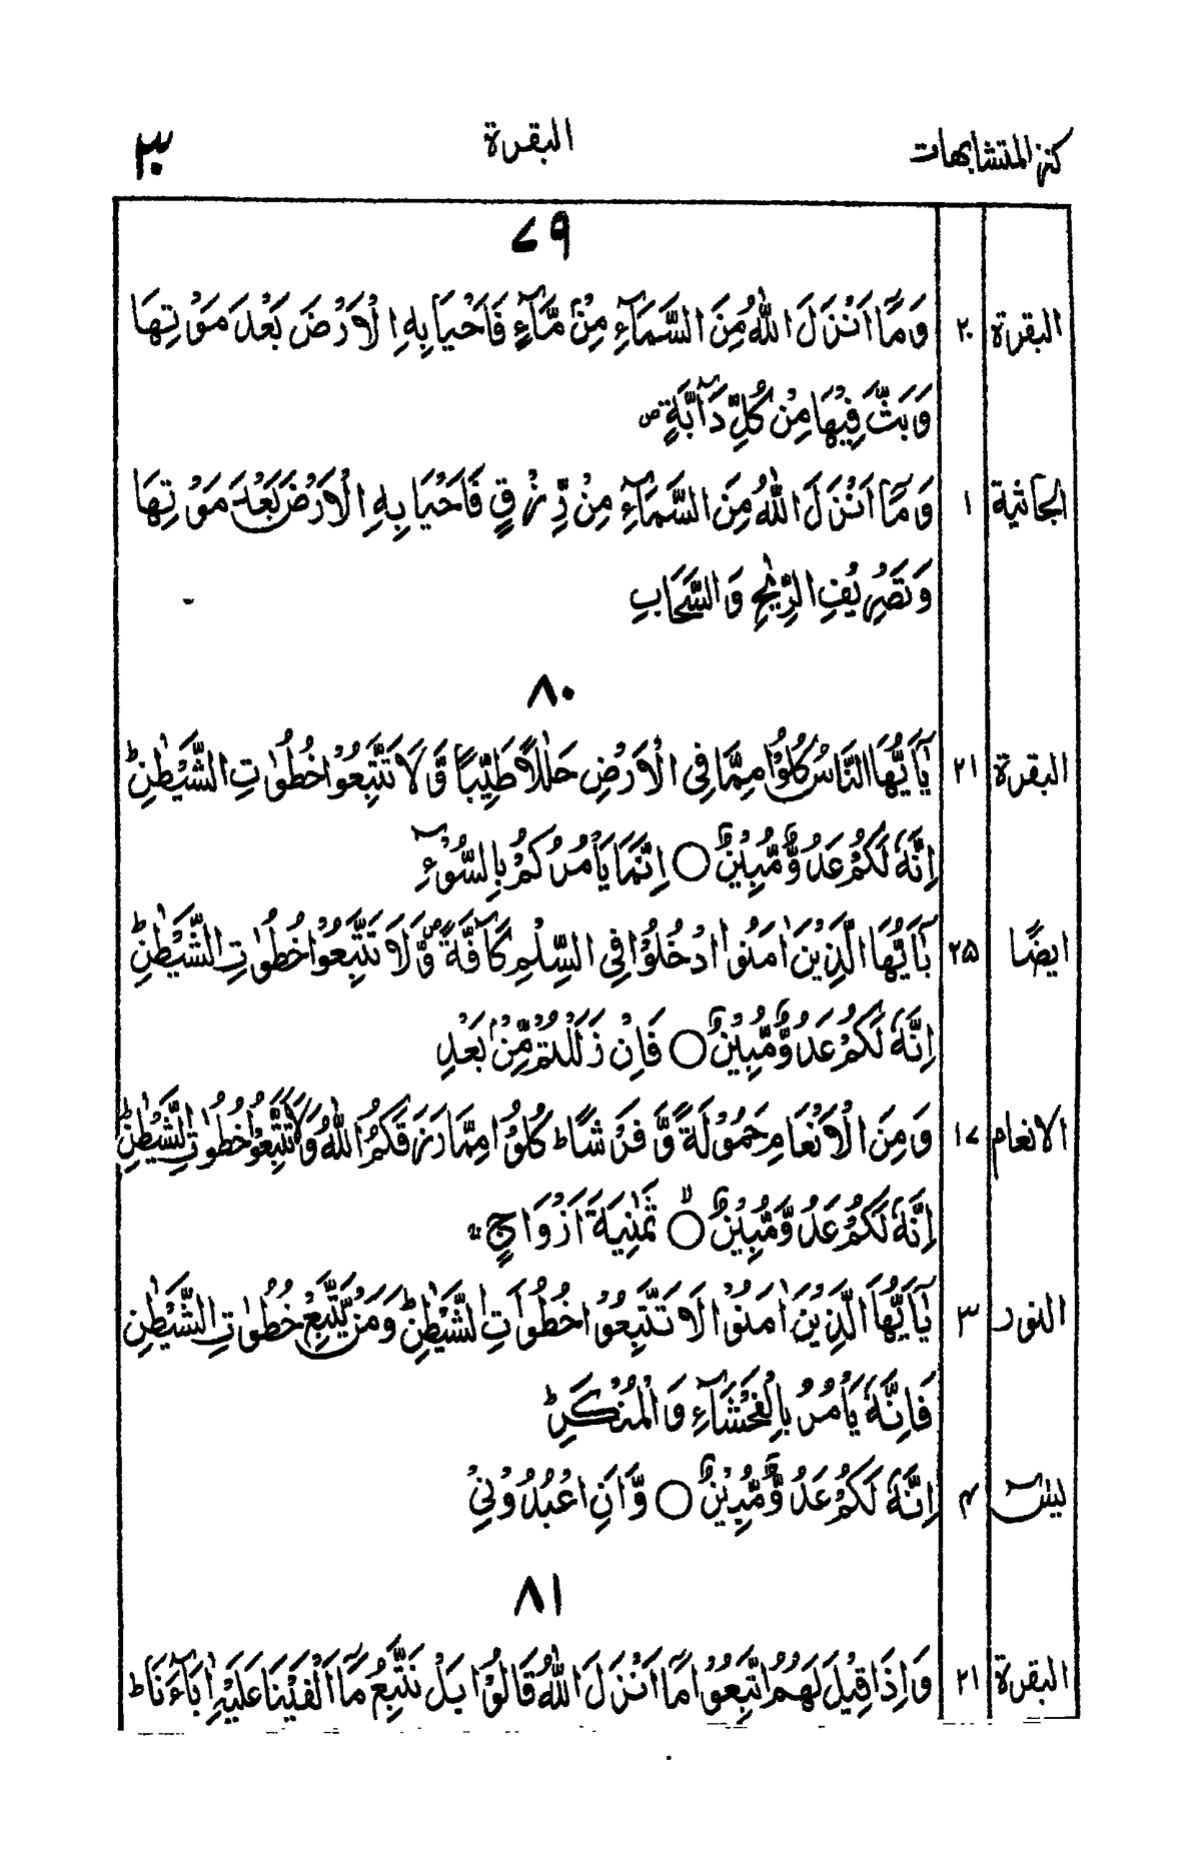 كنز المتشابهات البقرة ۳۰
۷۹
البقرة ۲۰ وَمَآ اَنْزَلَ اللّٰهُ مِنَ السَّمَآءِ مِنْ مَّآءٍ فَاَحْيَا بِهِ الْاَرْضَ بَعْدَ مَوْتِهَا
وَبَثَّ فِيْهَا مِنْ كُلِّ دَآبَّةٍ ص
الجاثية ۱ وَمَآ اَنْزَلَ اللّٰهُ مِنَ السَّمَآءِ مِنْ رِّزْقٍ فَاَحْيَا بِهِ الْاَرْضَ بَعْدَ مَوْتِهَا
وَتَصْرِيْفِ الرِّيٰحِ وَالسَّحَابِ
۸۰
البقرة ۲۱ يٰٓاَيُّهَا النَّاسُ كُلُوْا مِمَّا فِى الْاَرْضِ حَلٰلًا طَيِّبًا وَّلَا تَتَّبِعُوْا خُطُوٰتِ الشَّيْطٰنِ ط
اِنَّهٗ لَكُمْ عَدُوٌّ مُّبِيْنٌ ○ اِنَّمَا يَاْمُرُكُمْ بِالسُّوْٓءِ
ايضًا ۲۵ يٰٓاَيُّهَا الَّذِيْنَ اٰمَنُوا ادْخُلُوْا فِى السِّلْمِ كَآفَّةً ص وَّلَا تَتَّبِعُوْا خُطُوٰتِ الشَّيْطٰنِ ط
اِنَّهٗ لَكُمْ عَدُوٌّ مُّبِيْنٌ ○ فَاِنْ زَلَلْتُمْ مِّنْۢ بَعْدِ
الانعام ۱۷ وَمِنَ الْاَنْعَامِ حَمُوْلَةً وَّفَرْشًا ط كُلُوْا مِمَّا رَزَقَكُمُ اللّٰهُ وَلَا تَتَّبِعُوْا خُطُوٰتِ الشَّيْطٰنِ ط
اِنَّهٗ لَكُمْ عَدُوٌّ مُّبِيْنٌ ○ ثَمٰنِيَةَ اَزْوَاجٍ
النور ۳ يٰٓاَيُّهَا الَّذِيْنَ اٰمَنُوْا لَا تَتَّبِعُوْا خُطُوٰتِ الشَّيْطٰنِ ط وَمَنْ يَّتَّبِعْ خُطُوٰتِ الشَّيْطٰنِ
فَاِنَّهٗ يَاْمُرُ بِالْفَحْشَآءِ وَالْمُنْكَرِ ط
يٰسٓ ۴ اِنَّهٗ لَكُمْ عَدُوٌّ مُّبِيْنٌ ○ وَّاَنِ اعْبُدُوْنِيْ
۸۱
البقرة ۲۱ وَاِذَا قِيْلَ لَهُمُ اتَّبِعُوْا مَآ اَنْزَلَ اللّٰهُ قَالُوْا بَلْ نَتَّبِعُ مَآ اَلْفَيْنَا عَلَيْهِ اٰبَآءَنَا ط